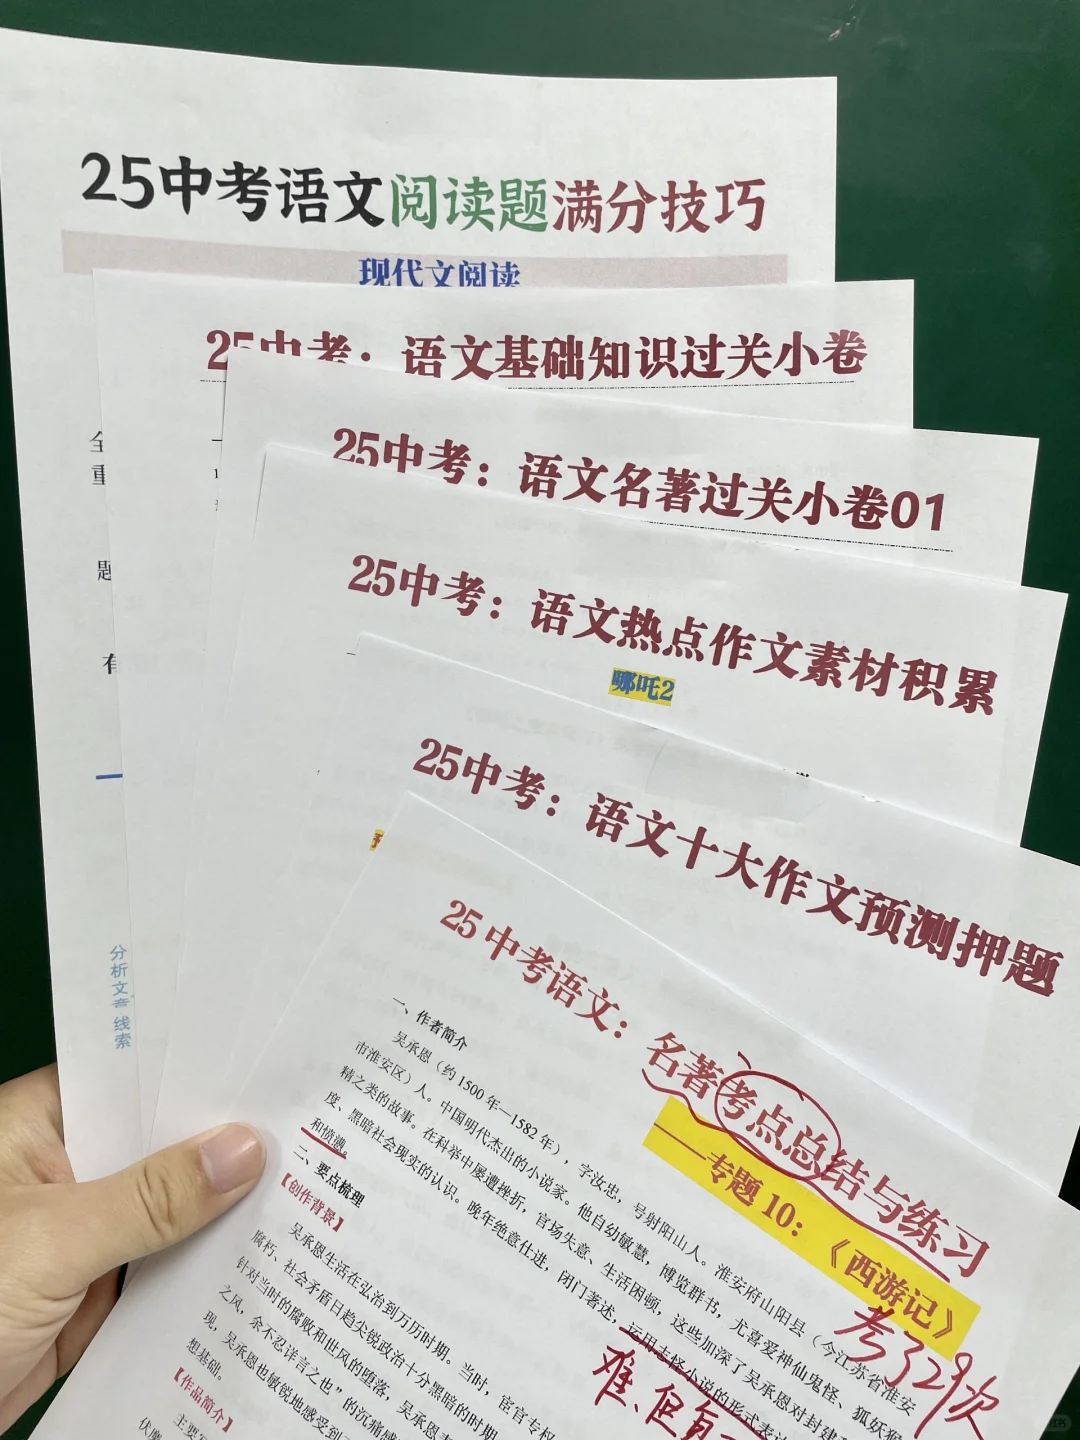 25中考语文阅读题满分技巧
现代文阅读
25中考：语文基础知识过关小卷
25中考：语文名著过关小卷01
25中考：语文热点作文素材积累
哪吒2
25中考：语文十大作文预测押题
全
重
题
有
分析文章线索
25中考语文：名著考点总结与练习
——专题10：《西游记》
考了29次
难、但
一、作者简介
吴承恩（约1500年—1582年），字汝忠，号射阳山人。淮安府山阳县（今江苏省淮安
市淮安区）人。中国明代杰出的小说家。他自幼敏慧，博览群书，尤喜爱神仙鬼怪、狐妖猴
精之类的故事。在科举中屡遭挫折，官场失意、生活困顿，这些加深了吴承恩对封建
度、黑暗社会现实的认识。晚年绝意仕进，闭门著述，运用志怪小说的形式表达
和愤懑。
二、要点梳理
【创作背景】
吴承恩生活在弘治到万历时期。当时，宦官专权
腐朽、社会矛盾日趋尖锐政治十分黑暗的时期
针对当时的腐败和世风的堕落，吴承恩
之风，余不忍详言之也”的沉痛感
现，吴承恩也敏锐地感受到
想基础。
【作品简介】
主要
伏魔